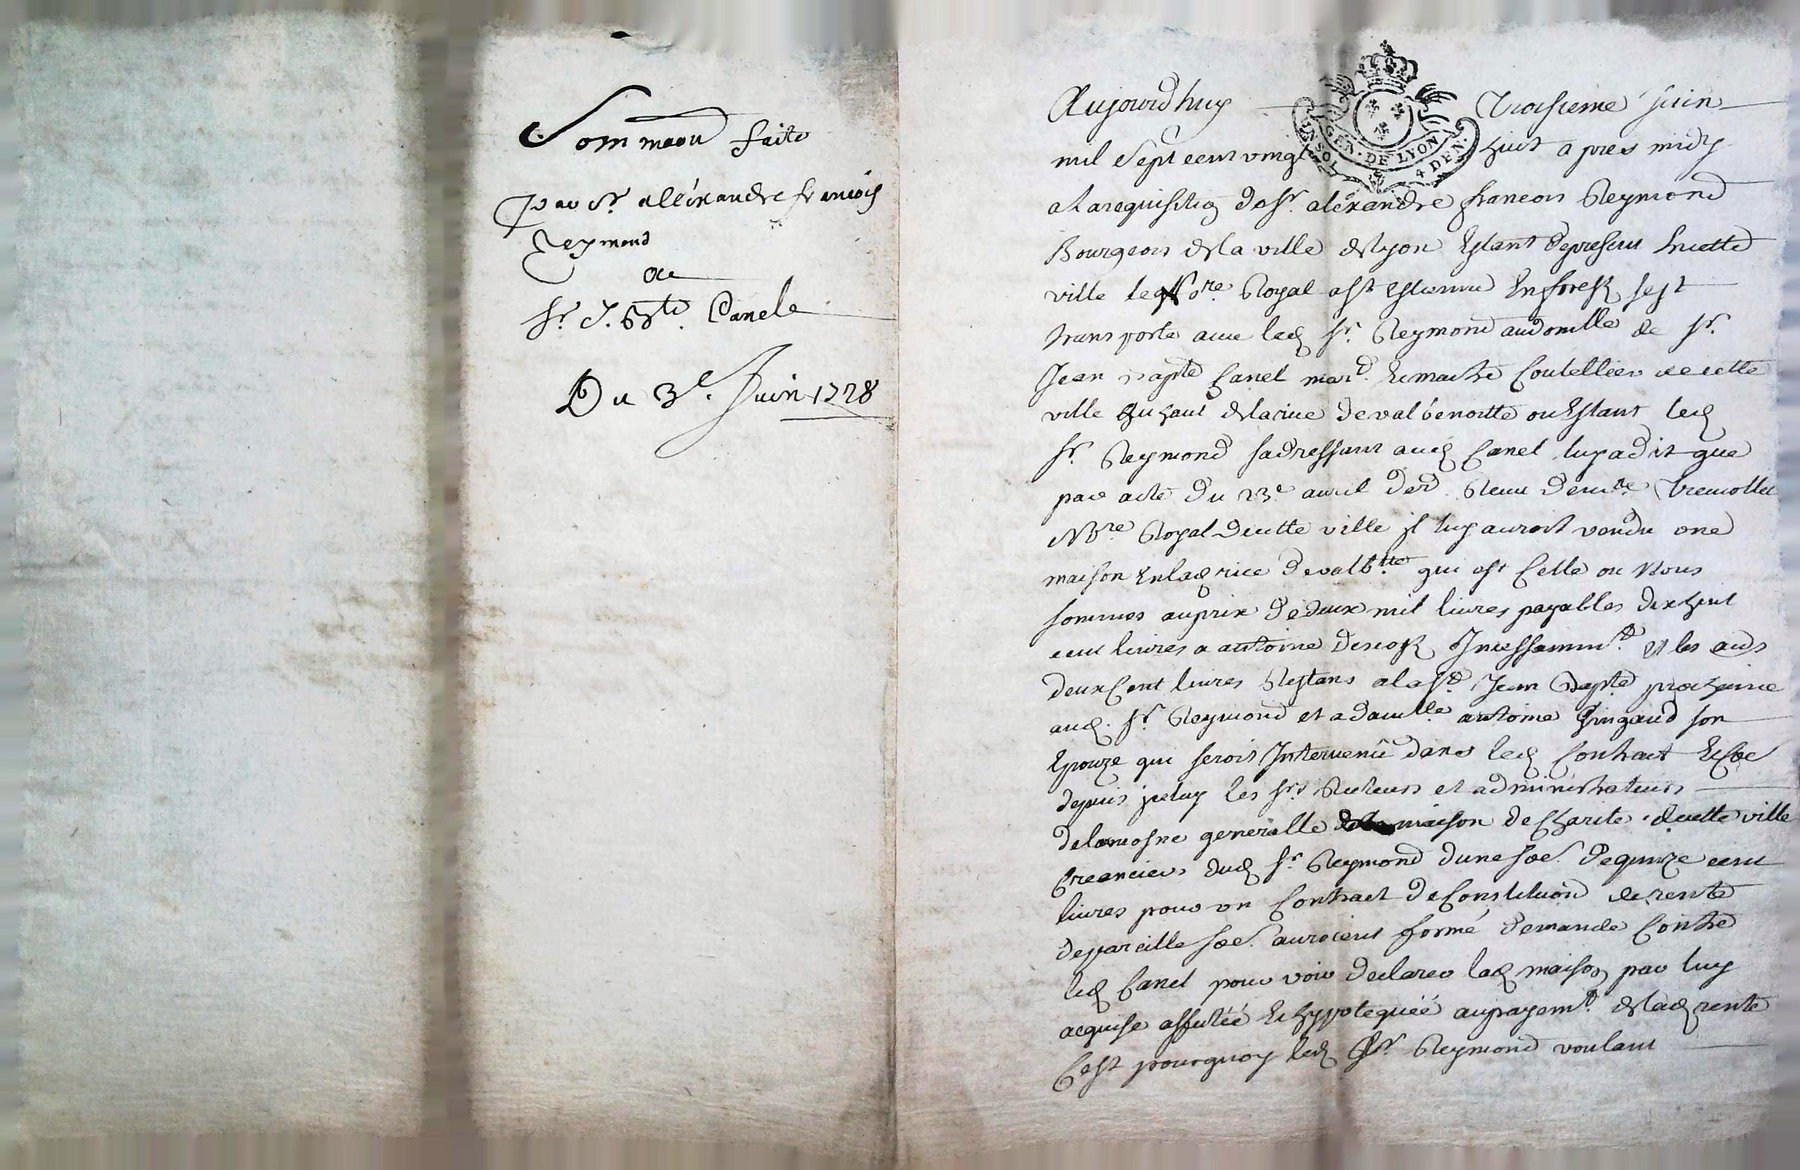 Sommaon faite
par Sr. alexandre francois
Reymond
au
Sr. J. Bte. Canele
Du 3e. Juin 1728
Aujourdhuy troisieme juin
GEN. DE LYON
UN SOL 4 DEN.
mil sept cent vingt huit apres midy
a la requisition de Sr. alexandre francois Reymond
Bourgeois de la ville de lyon Estant de present En cette
ville le Nore. Royal a St Estienne En forest sest
transporté avec led Sr. Reymond au domicille de Sr.
Jean Bapte Canel mard. Et maitre Coutellier de cette
ville au haut de la rue de valbenoitte ou Estant led
Sr. Reymond sadressant aud Canel luy a dit que
par acte du 23e avril der. Receu de me. tremollet
Nore Royal de cette ville il luy auroit vendu une
maison En lad rue de valbtte qui est Celle ou Nous
sommes au prix de deux mil livres payables dix huit
cent livres a antoine Incessamt. Et les aus
deux Cent livres Restans a la St. Jean Bapte prochaine
aud. Sr. Reymond et a damlle antoine son
Epouze qui serois Intervenû dans led Contract Et Coe
depuis peluy les Srs Recteurs et administrateurs
de lomosne generalle maison de Charité de cette ville
Creanciers dud Sr Reymond dune soe. de quinze cent
livres pour un Contract de Constituon de rente
de pareille soe. auroient formé demande Contre
led Canel pour voir declarer lad maison par luy
acquise affutéé Et hypotequéé au payemt. de lad rente
Cest pourquoy led Sr. Reymond voulant